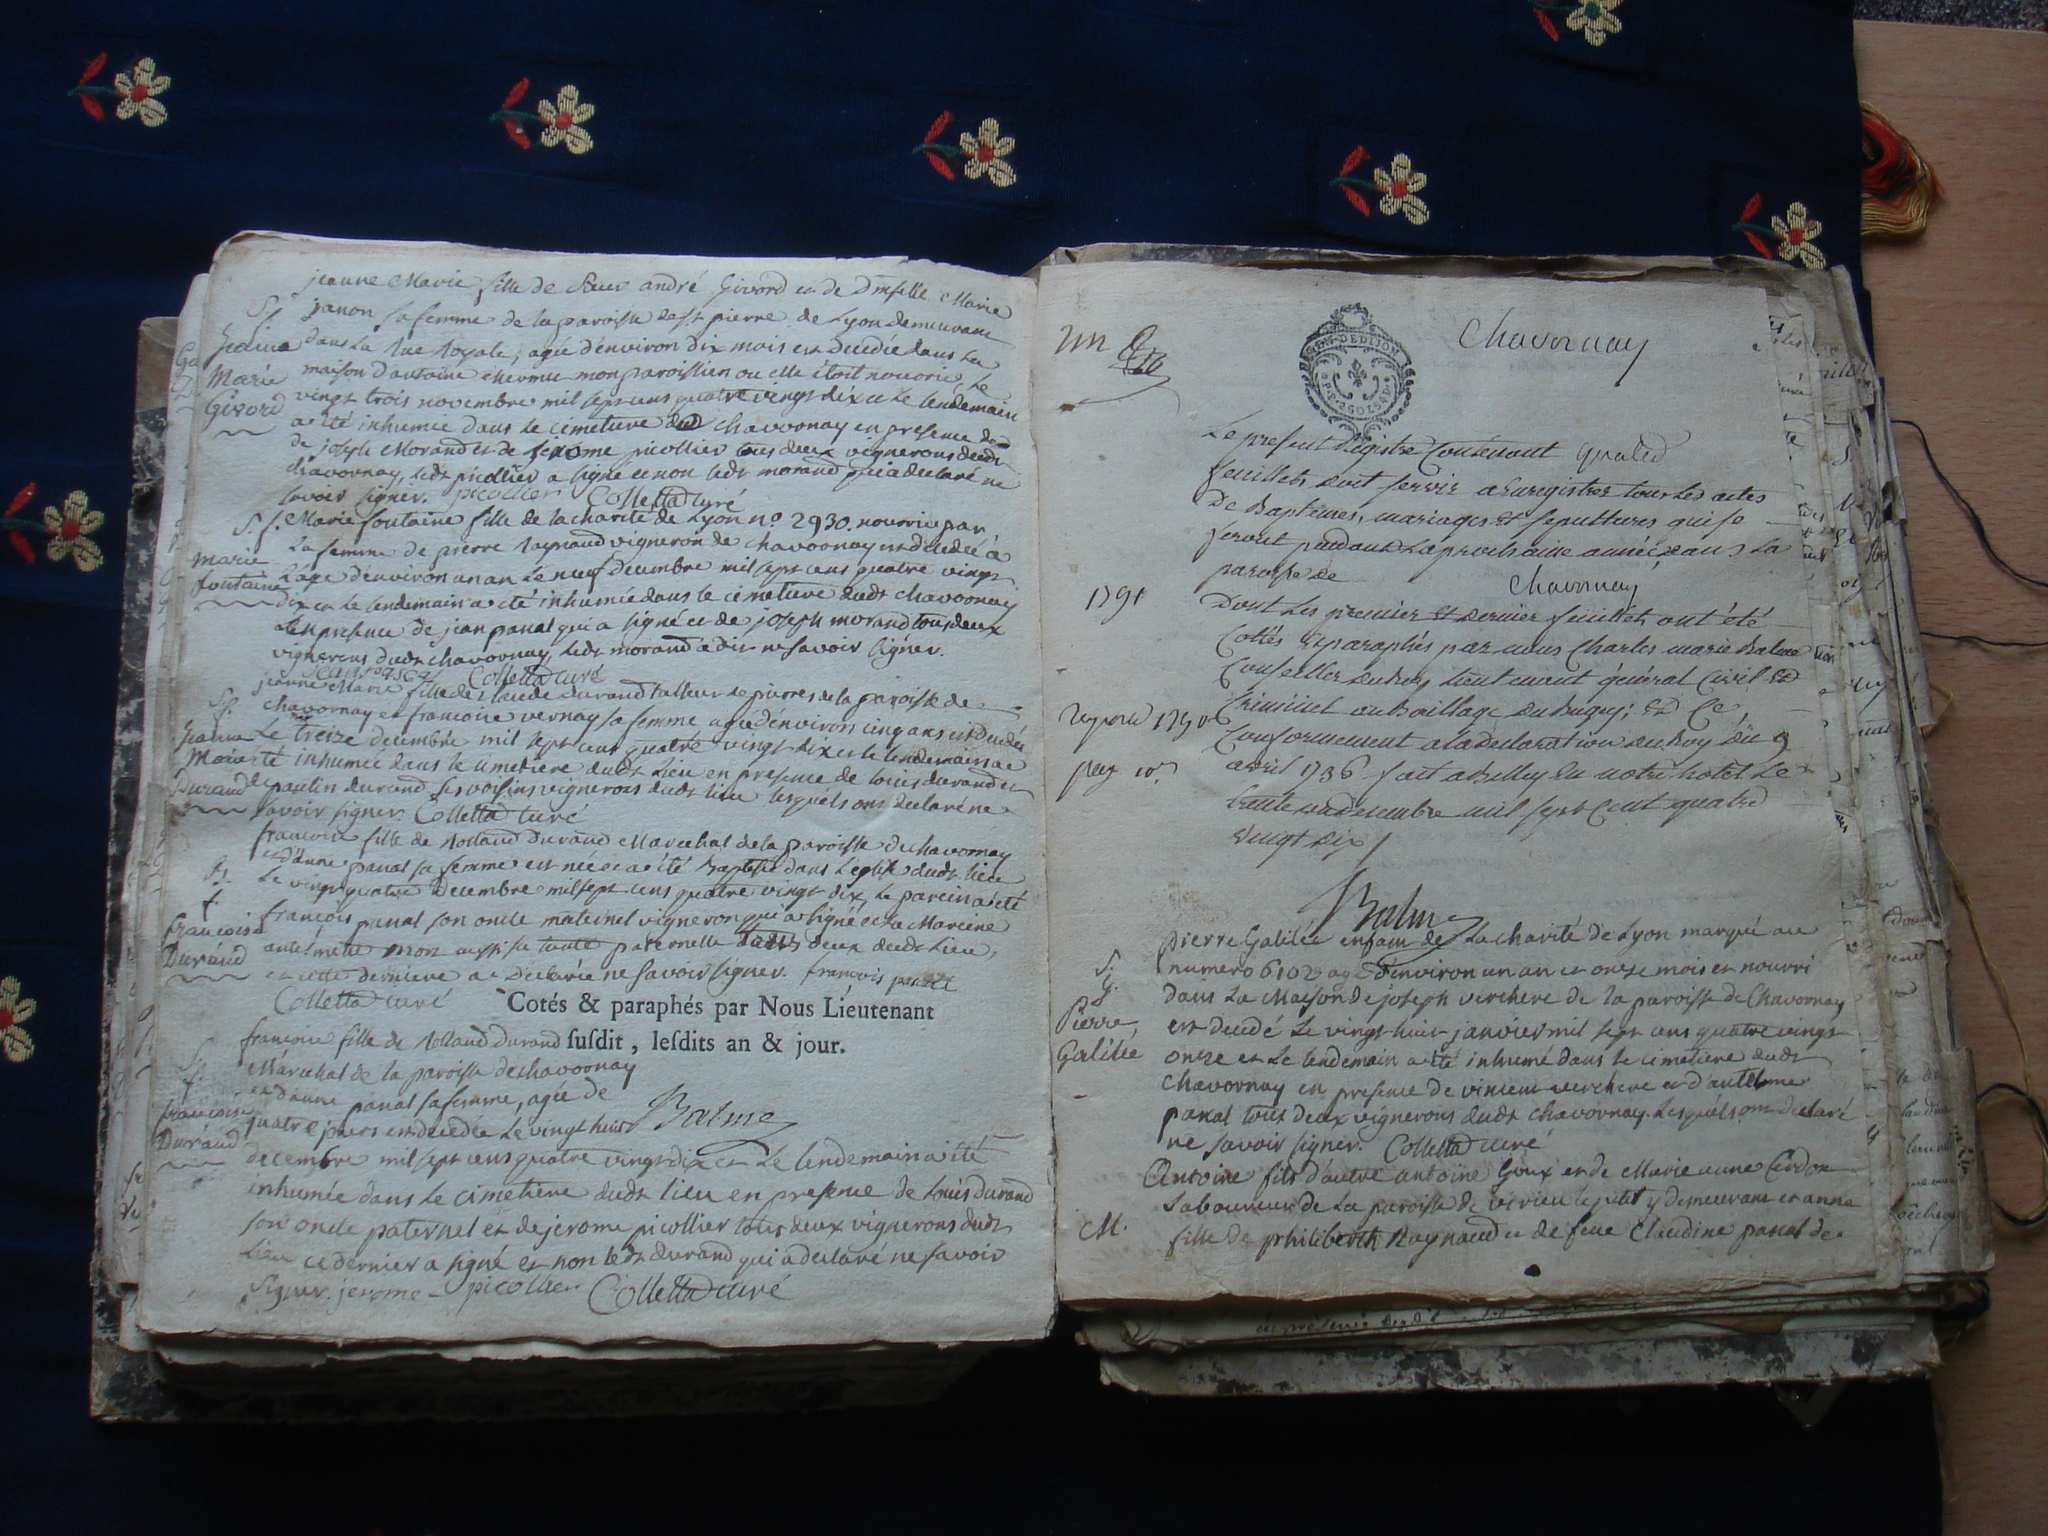 jeanne Marie fille de sieur andré Givord et de Dmselle Marie
janon sa femme de la paroisse de st pierre de Lyon demeurant
dans La Rue Royale, agée d'environ dix mois est decedée dans La
maison d'antoine mon paroissien ou elle étoit nourrie, Le
vingt trois novembre mil sept cens quatre vingt dix et Le Lendemain
a été inhumée dans le cimetiere dudt chavornay en presence
de joseph Morand et de jerome picollier tous deux vignerons dudt
chavornay, ledt picollier a signé et non ledt morand qui a declaré ne
savoir signer. picollier Colletta curé
S.
Jeanne
Marie
Givord
S. f. Marie fontaine fille de la charité de Lyon no. 2930. nourrie par
La femme de pierre Raynaud vigneron de chavornay est decedée à
L'age d'environ un an Le neuf decembre mil sept cens quatre vingt
dix et le lendemain a été inhumée dans le cimetiere dudt chavornay
en presence de jean panal qui a signé et de joseph morand tous deux
vignerons dudt chavornay, ledt morand a dit ne savoir signer.
Colletta curé
marie
fontaine
jeanne Marie fille de Claude durand tailleur de pierres de la paroisse de
chavornay et francoise vernay sa femme agée d'environ cinq ans est decedée
Le treize decembre mil sept cens quatre vingt dix et le lendemain a
été inhumée dans le cimetiere dudt Lieu en presence de louis durand et
de paulin durand ses voisins vignerons dudt lieu lesquels ont declaré ne
savoir signer. Colletta curé
Sf.
Jeanne
Marie
Durand
francoise fille de Rolland durand Marechal de la paroisse de chavornay
et d'anne panal sa femme est née et a été Baptisée dans L'eglise dudt lieu
Le vingt quatre Decembre mil sept cens quatre vingt dix, Le parein a été
francois panal son oncle maternel vigneron qui a signé et La Mareine
sa tante paternelle deux dudt Lieu,
et cette derniere a declarée ne savoir signer. francois panal
Colletta curé
francoise
Durand
Cotés & paraphés par Nous Lieutenant
susdit, lesdits an & jour.
francoise fille de Rolland durand
Maréchal de la paroisse de chavornay
et d'anne panal sa femme, agée de
quatre jours est decedée Le vingt huit Balme
decembre mil sept cens quatre vingt dix et Le lendemain a été
inhumée dans le cimetiere dudt lieu en presence de Louis durand
son oncle paternel et de jerome picollier tous deux vignerons dudt
Lieu ce dernier a signé et non ledt durand qui a declaré ne savoir
signer. jerome picollier Colletta curé
S.
f.
francoise
Durand
un
Chavornay
GEN. DE DIJON
Le present Registre Contenant quatre
feuillets doit servir a Enregistrer tous Les actes
De Baptemes, mariages et sepultures qui se
feront pendant La prochaine année dans La
paroisse de Chavornay
1791
Dont Les premier et dernier feuillets ont été
Cottés et paraphés par nous Charles marie Balme
Conseiller du Roy Lieutenant général Civil et
Criminel au Baillage du Bugey; Et Ce
Conformement a la declaration du Roy du 9
avril 1736 fait a Belley En notre hotel Le
trente un decembre mil sept Cent quatre
vingt Dix
Balme
pierre Galilée enfant de La charité de Lyon marqué au
numero 6102 agé d'environ un an et onze mois et nourri
dans La Maison de joseph verchere de la paroisse de Chavornay
est decedé Le vingt huit janvier mil sept cens quatre vingt
onze et Le lendemain a été inhumé dans le cimetiere dudt
chavornay en presence de vincent verchere et d'antelme
panal tous deux vignerons dudt chavornay. Lesquels ont declaré
ne savoir signer. Colletta curé
S.
G.
Pierre
Galilée
Antoine fils d'autre antoine Goux et de Marie anne Cerdon
Laboureur de La paroisse de virieu le petit y demeurant et anne
fille de philiberth Raynaud et de feue Claudine panal de
M.